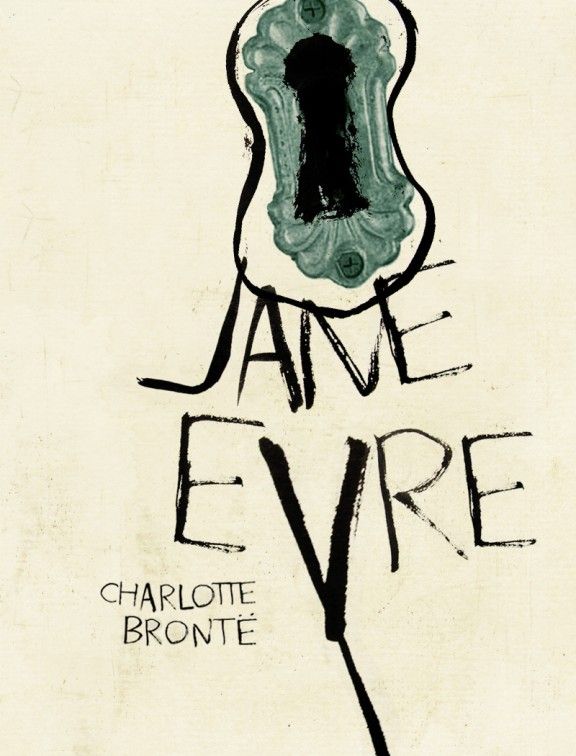 JANE
EYRE
CHARLOTTE
BRONTË